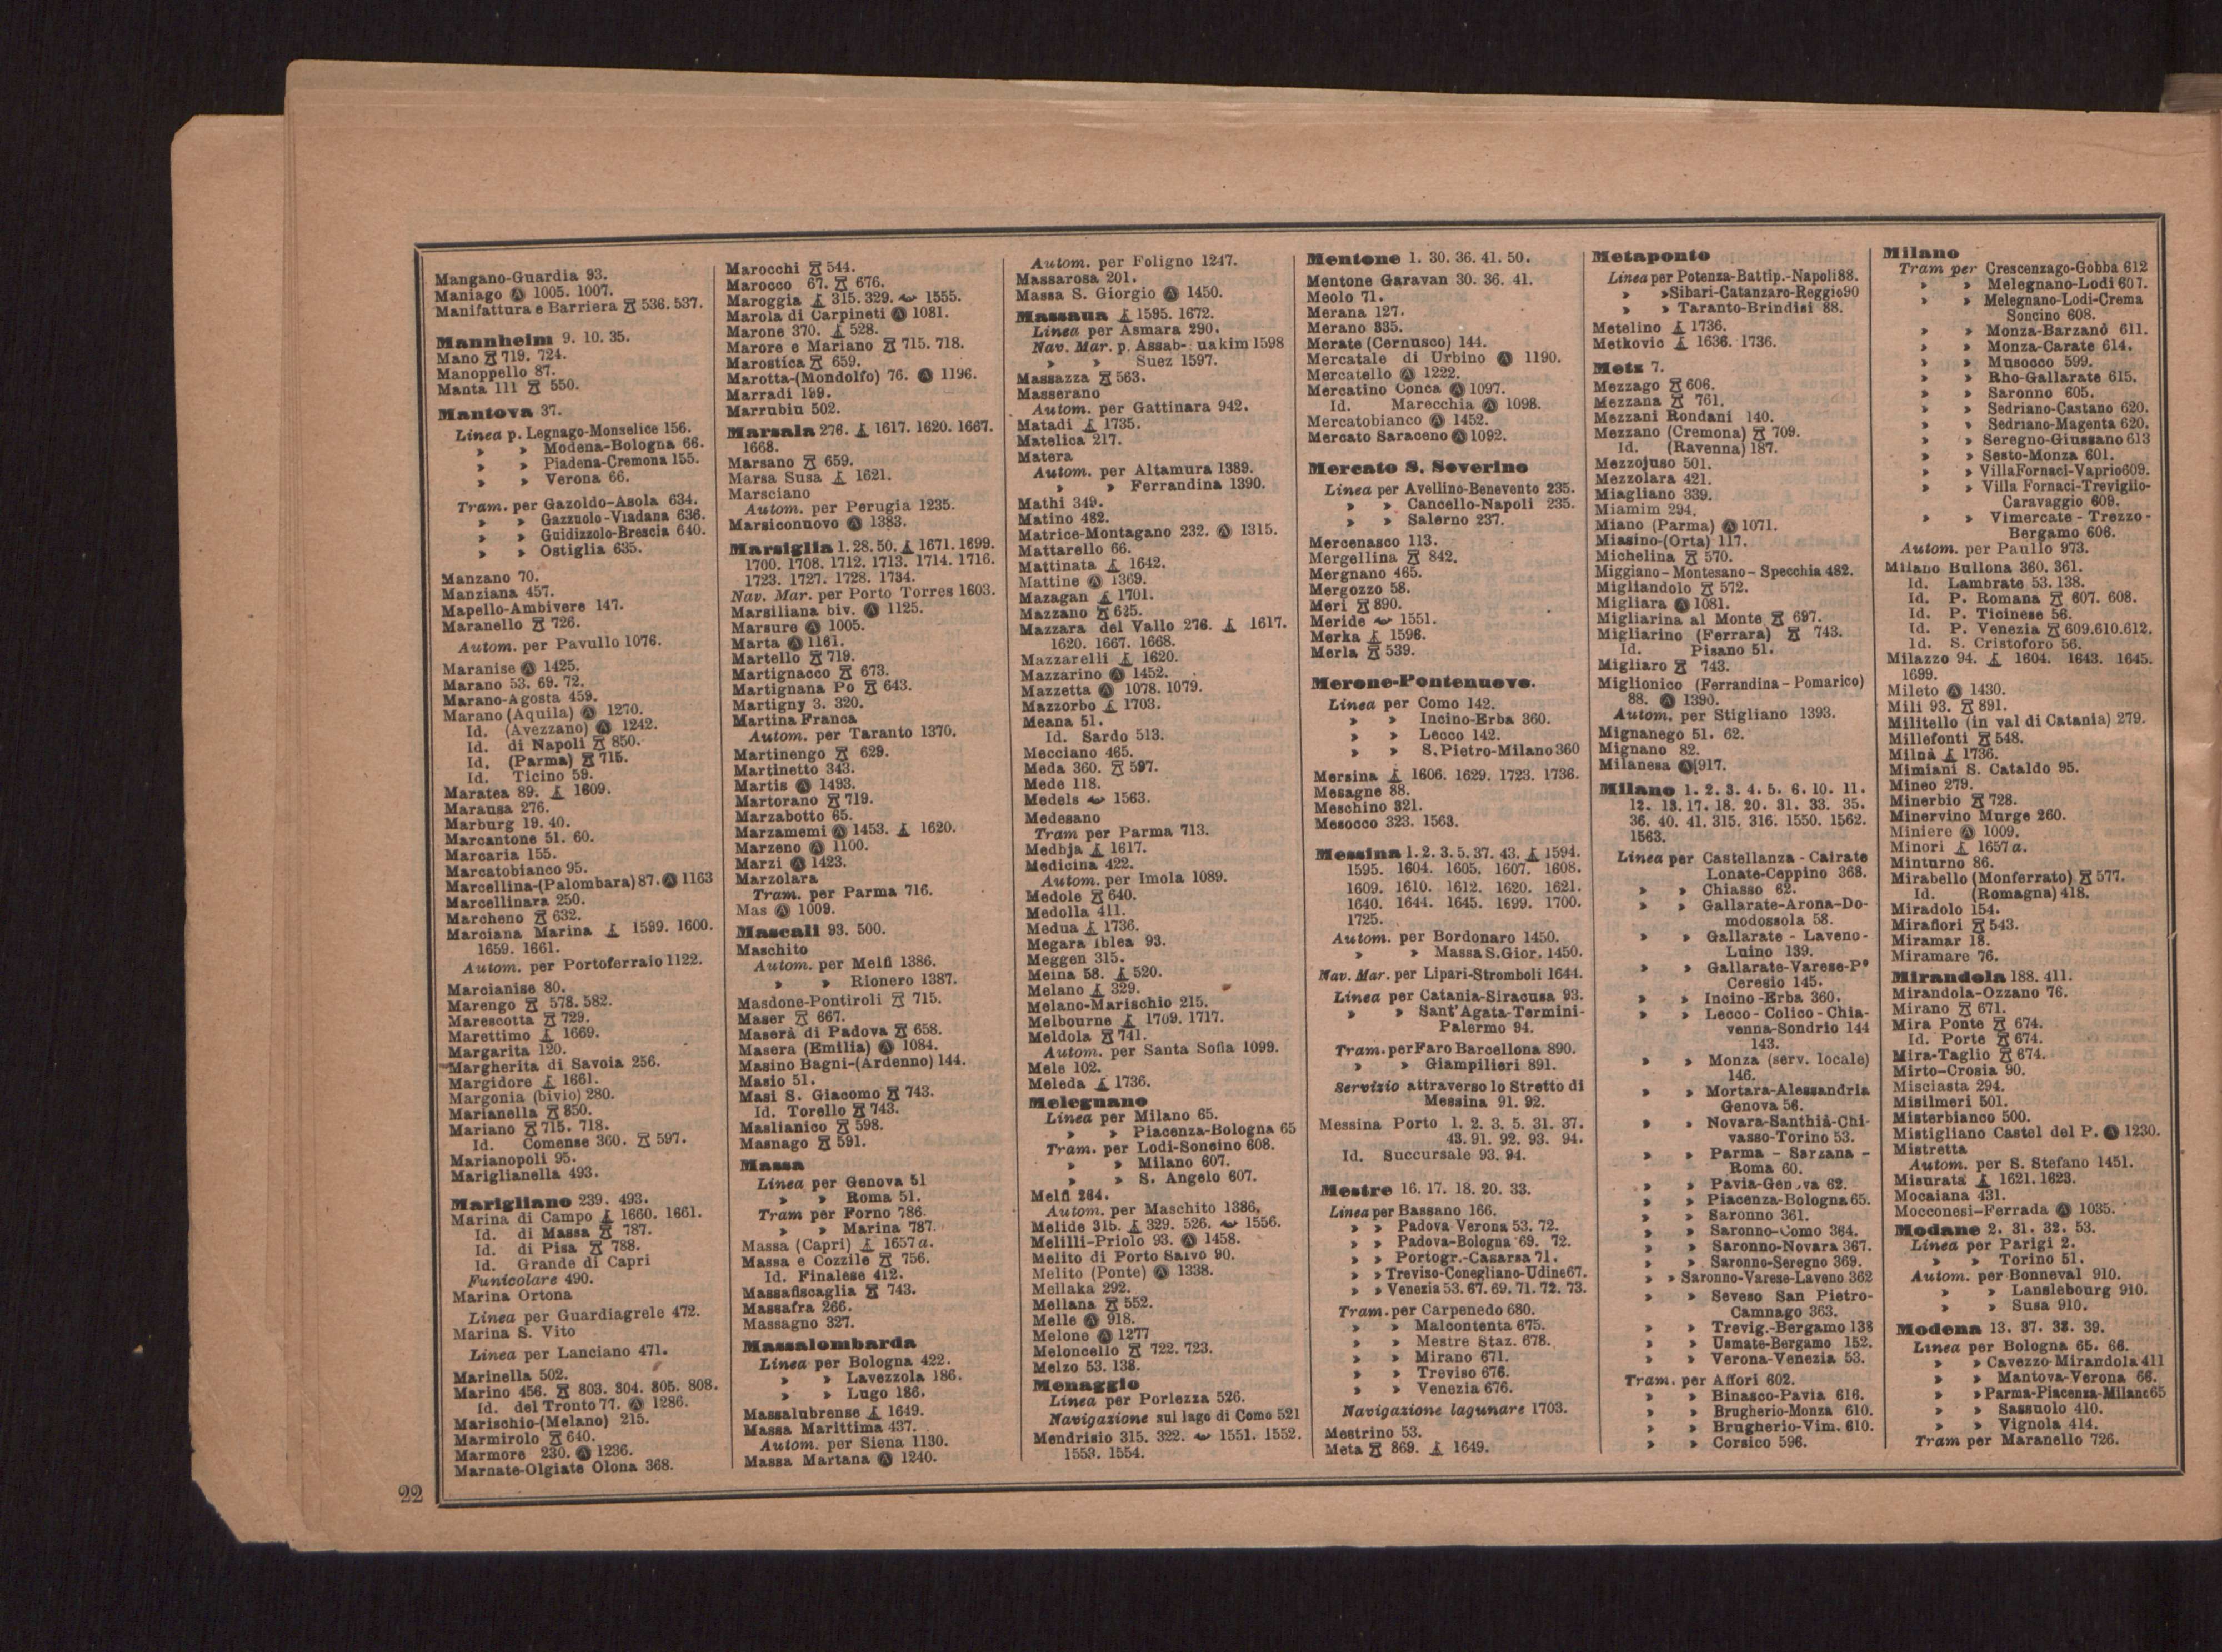 Mangano-Guardia 93.
Maniago Ⓐ 1005. 1007.
Manifattura e Barriera 536. 537.
Mannheim 9. 10. 35.
Mano 719. 724.
Manoppello 87.
Manta 111 550.
Mantova 37.
Linea p. Legnago-Monselice 156.
» » Modena-Bologna 66.
» » Piadena-Cremona 155.
» » Verona 66.
Tram. per Gazoldo-Asola 634.
» » Gazzuolo-Viadana 636.
» » Guidizzolo-Brescia 640.
» » Ostiglia 635.
Manzano 70.
Manziana 457.
Mapello-Ambivere 147.
Maranello 726.
Autom. per Pavullo 1076.
Maranise Ⓐ 1425.
Marano 53. 69. 72.
Marano-Agosta 459.
Marano (Aquila) Ⓐ 1270.
Id. (Avezzano) Ⓐ 1242.
Id. di Napoli 850.
Id. (Parma) 715.
Id. Ticino 59.
Maratea 89. 1609.
Marausa 276.
Marburg 19. 40.
Marcantone 51. 60.
Marcaria 155.
Marcatobianco 95.
Marcellina-(Palombara) 87. Ⓐ 1163
Marcellinara 250.
Marcheno 632.
Marciana Marina 1599. 1600.
1659. 1661.
Autom. per Portoferraio 1122.
Marcianise 80.
Marengo 578. 582.
Marescotta 729.
Marettimo 1669.
Margarita 120.
Margherita di Savoia 256.
Margidore 1661.
Margonia (bivio) 280.
Marianella 850.
Mariano 715. 718.
Id. Comense 360. 597.
Marianopoli 95.
Mariglianella 493.
Marigliano 239. 493.
Marina di Campo 1660. 1661.
Id. di Massa 787.
Id. di Pisa 788.
Id. Grande di Capri
Funicolare 490.
Marina Ortona
Linea per Guardiagrele 472.
Marina S. Vito
Linea per Lanciano 471.
Marinella 502.
Marino 456. 803. 804. 805. 808.
Id. del Tronto 77. Ⓐ 1286.
Marischio-(Melano) 215.
Marmirolo 640.
Marmore 230. Ⓐ 1236.
Marnate-Olgiate Olona 368.
Marocchi 544.
Marocco 67. 676.
Maroggia 315. 329. 1555.
Marola di Carpineti Ⓐ 1081.
Marone 370. 528.
Marore e Mariano 715. 718.
Marostica 659.
Marotta-(Mondolfo) 76. Ⓐ 1196.
Marradi 199.
Marrubiu 502.
Marsala 276. 1617. 1620. 1667.
1668.
Marsano 659.
Marsa Susa 1621.
Marsciano
Autom. per Perugia 1235.
Marsiconuovo Ⓐ 1383.
Marsiglia 1. 28. 50. 1671. 1699.
1700. 1708. 1712. 1713. 1714. 1716.
1723. 1727. 1728. 1734.
Nav. Mar. per Porto Torres 1603.
Marsiliana biv. Ⓐ 1125.
Marsure Ⓐ 1005.
Marta Ⓐ 1161.
Martello 719.
Martignacco 673.
Martignana Po 643.
Martigny 3. 320.
Martina Franca
Autom. per Taranto 1370.
Martinengo 629.
Martinetto 343.
Martis Ⓐ 1493.
Martorano 719.
Marzabotto 65.
Marzamemi Ⓐ 1453. 1620.
Marzeno Ⓐ 1100.
Marzi Ⓐ 1423.
Marzolara
Tram. per Parma 716.
Mas Ⓐ 1009.
Mascali 93. 500.
Maschito
Autom. per Melfi 1386.
» » Rionero 1387.
Masdone-Pontiroli 715.
Maser 667.
Maserà di Padova 658.
Masera (Emilia) Ⓐ 1084.
Masino Bagni-(Ardenno) 144.
Masio 51.
Masi S. Giacomo 743.
Id. Torello 743.
Maslianico 598.
Masnago 591.
Massa
Linea per Genova 51
» » Roma 51.
Tram per Forno 786.
» » Marina 787.
Massa (Capri) 1657a.
Massa e Cozzile 756.
Id. Finalese 412.
Massafiscaglia 743.
Massafra 266.
Massagno 327.
Massalombarda
Linea per Bologna 422.
» » Lavezzola 186.
» » Lugo 186.
Massalubrense 1649.
Massa Marittima 437.
Autom. per Siena 1130.
Massa Martana Ⓐ 1240.
Autom. per Foligno 1247.
Massarosa 201.
Massa S. Giorgio Ⓐ 1450.
Massaua 1595. 1672.
Linea per Asmara 290.
Nav. Mar. p. Assab- uakim 1598
» » Suez 1597.
Massazza 563.
Masserano
Autom. per Gattinara 942.
Matadi 1735.
Matelica 217.
Matera
Autom. per Altamura 1389.
» » Ferrandina 1390.
Mathi 349.
Matino 482.
Matrice-Montagano 232. Ⓐ 1315.
Mattarello 66.
Mattinata 1642.
Mattine Ⓐ 1369.
Mazagan 1701.
Mazzano 625.
Mazzara del Vallo 276. 1617.
1620. 1667. 1668.
Mazzarelli 1620.
Mazzarino Ⓐ 1452.
Mazzetta Ⓐ 1078. 1079.
Mazzorbo 1703.
Meana 51.
Id. Sardo 513.
Mecciano 465.
Meda 360. 597.
Mede 118.
Medels 1563.
Medesano
Tram per Parma 713.
Medhja 1617.
Medicina 422.
Autom. per Imola 1089.
Medole 640.
Medolla 411.
Medua 1736.
Megara Iblea 93.
Meggen 315.
Meina 58. 520.
Melano 329.
Melano-Marischio 215.
Melbourne 1709. 1717.
Meldola 741.
Autom. per Santa Sofia 1099.
Mele 102.
Meleda 1736.
Melegnano
Linea per Milano 65.
» » Piacenza-Bologna 65
Tram. per Lodi-Soncino 608.
» » Milano 607.
» » S. Angelo 607.
Melfi 264.
Autom. per Maschito 1386.
Melide 315. 329. 526. 1556.
Melilli-Priolo 93. Ⓐ 1458.
Melito di Porto Salvo 90.
Melito (Ponte) Ⓐ 1338.
Mellaka 292.
Mellana 552.
Melle Ⓐ 918.
Melone Ⓐ 1277
Meloncello 722. 723.
Melzo 53. 138.
Menaggio
Linea per Porlezza 526.
Navigazione sul lago di Como 521
Mendrisio 315. 322. 1551. 1552.
1553. 1554.
Mentone 1. 30. 36. 41. 50.
Mentone Garavan 30. 36. 41.
Meolo 71.
Merana 127.
Merano 335.
Merate (Cernusco) 144.
Mercatale di Urbino Ⓐ 1190.
Mercatello Ⓐ 1222.
Mercatino Conca Ⓐ 1097.
Id. Marecchia Ⓐ 1098.
Mercatobianco Ⓐ 1452.
Mercato Saraceno Ⓐ 1092.
Mercato S. Severino
Linea per Avellino-Benevento 235.
» » Cancello-Napoli 235.
» » Salerno 237.
Mercenasco 113.
Mergellina 842.
Mergnano 465.
Mergozzo 58.
Meri 890.
Meride 1551.
Merka 1596.
Merla 539.
Merone-Pontenuovo.
Linea per Como 142.
» » Incino-Erba 360.
» » Lecco 142.
» » S. Pietro-Milano 360
Mersina 1606. 1629. 1723. 1736.
Mesagne 88.
Meschino 321.
Mesocco 323. 1563.
Messina 1. 2. 3. 5. 37. 43. 1594.
1595. 1604. 1605. 1607. 1608.
1609. 1610. 1612. 1620. 1621.
1640. 1644. 1645. 1699. 1700.
1725.
Autom. per Bordonaro 1450.
» » Massa S. Gior. 1450.
Nav. Mar. per Lipari-Stromboli 1644.
Linea per Catania-Siracusa 93.
» » Sant'Agata-Termini-
Palermo 94.
Tram. per Faro Barcellona 890.
» » Giampilieri 891.
Servizio attraverso lo Stretto di
Messina 91. 92.
Messina Porto 1. 2. 3. 5. 31. 37.
43. 91. 92. 93. 94.
Id. Succursale 93. 94.
Mestre 16. 17. 18. 20. 33.
Linea per Bassano 166.
» » Padova Verona 53. 72.
» » Padova-Bologna 69. 72.
» » Portogr.-Casarsa 71.
» » Treviso-Conegliano-Udine 67.
» » Venezia 53. 67. 69. 71. 72. 73.
Tram. per Carpenedo 680.
» » Malcontenta 675.
» » Mestre Staz. 678.
» » Mirano 671.
» » Treviso 676.
» » Venezia 676.
Navigazione lagunare 1703.
Mestrino 53.
Meta 869. 1649.
Metaponto
Linea per Potenza-Battip.-Napoli 88.
» » Sibari-Catanzaro-Reggio 90
» » Taranto-Brindisi 88.
Metelino 1736.
Metkovic 1636. 1736.
Metz 7.
Mezzago 606.
Mezzana 761.
Mezzani Rondani 140.
Mezzano (Cremona) 709.
Id. (Ravenna) 187.
Mezzojuso 501.
Mezzolara 421.
Miagliano 339.
Miamim 294.
Miano (Parma) Ⓐ 1071.
Miasino-(Orta) 117.
Michelina 570.
Miggiano-Montesano-Specchia 482.
Migliandolo 572.
Migliara Ⓐ 1081.
Migliarina al Monte 697.
Migliarino (Ferrara) 743.
Id. Pisano 51.
Migliaro 743.
Miglionico (Ferrandina-Pomarico)
88. Ⓐ 1390.
Autom. per Stigliano 1393.
Mignanego 51. 62.
Mignano 82.
Milanesa Ⓐ 917.
Milano 1. 2. 3. 4. 5. 6. 10. 11.
12. 13. 17. 18. 20. 31. 33. 35.
36. 40. 41. 315. 316. 1550. 1562.
1563.
Linea per Castellanza - Cairate
Lonate-Ceppino 368.
» » Chiasso 62.
» » Gallarate-Arona-Do-
modossola 58.
» » Gallarate - Laveno-
Luino 139.
» » Gallarate-Varese-Pº
Ceresio 145.
» » Incino-Erba 360.
» » Lecco - Colico - Chia-
venna-Sondrio 144
143.
» » Monza (serv. locale)
146.
» » Mortara-Alessandria
Genova 56.
» » Novara-Santhià-Chi-
vasso-Torino 53.
» » Parma - Sarzana -
Roma 60.
» » Pavia-Gen va 62.
» » Piacenza-Bologna 65.
» » Saronno 361.
» » Saronno-Como 364.
» » Saronno-Novara 367.
» » Saronno-Seregno 369.
» » Saronno-Varese-Laveno 362
» » Seveso San Pietro-
Camnago 363.
» » Trevig.-Bergamo 138
» » Usmate-Bergamo 152.
» » Verona-Venezia 53.
Tram. per Affori 602.
» » Binasco-Pavia 616.
» » Brugherio-Monza 610.
» » Brugherio-Vim. 610.
» » Corsico 596.
Milano
Tram per Crescenzago-Gobba 612
» » Melegnano-Lodi 607.
» » Melegnano-Lodi-Crema
Soncino 608.
» » Monza-Barzanò 611.
» » Monza-Carate 614.
» » Musocco 599.
» » Rho-Gallarate 615.
» » Saronno 605.
» » Sedriano-Castano 620.
» » Sedriano-Magenta 620.
» » Seregno-Giussano 613
» » Sesto-Monza 601.
» » Villa Fornaci-Vaprio 609.
» » Villa Fornaci-Treviglio-
Caravaggio 609.
» » Vimercate - Trezzo -
Bergamo 606.
Autom. per Paullo 973.
Milano Bullona 360. 361.
Id. Lambrate 53. 138.
Id. P. Romana 607. 608.
Id. P. Ticinese 56.
Id. P. Venezia 609. 610. 612.
Id. S. Cristoforo 56.
Milazzo 94. 1604. 1643. 1645.
1699.
Mileto Ⓐ 1430.
Mili 93. 891.
Militello (in val di Catania) 279.
Millefonti 548.
Milna 1736.
Mimiani S. Cataldo 95.
Mineo 279.
Minerbio 728.
Minervino Murge 260.
Miniere Ⓐ 1009.
Minori 1657a.
Minturno 86.
Mirabello (Monferrato) 577.
Id. (Romagna) 418.
Miradolo 154.
Mirafiori 543.
Miramar 18.
Miramare 76.
Mirandola 188. 411.
Mirandola-Ozzano 76.
Mirano 671.
Mira Ponte 674.
Id. Porte 674.
Mira-Taglio 674.
Mirto-Crosia 90.
Misciasta 294.
Misilmeri 501.
Misterbianco 500.
Mistigliano Castel del P. Ⓐ 1230.
Mistretta
Autom. per S. Stefano 1451.
Misurata 1621. 1623.
Mocaiana 431.
Mocconesi-Ferrada Ⓐ 1035.
Modane 2. 31. 32. 53.
Linea per Parigi 2.
» » Torino 51.
Autom. per Bonneval 910.
» » Lanslebourg 910.
» » Susa 910.
Modena 13. 37. 38. 39.
Linea per Bologna 65. 66.
» » Cavezzo Mirandola 411
» » Mantova-Verona 66.
» » Parma-Piacenza-Milano 65
» » Sassuolo 410.
» » Vignola 414.
Tram per Maranello 726.
22